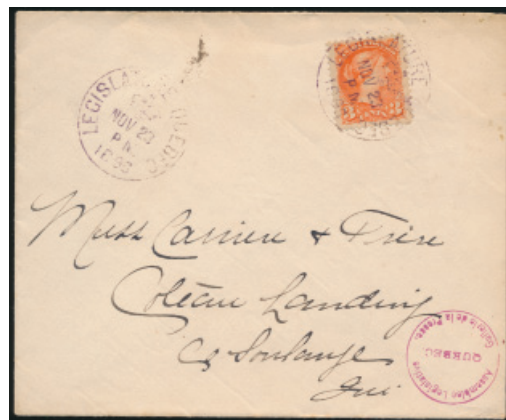 LEGISLATURE QUEBEC
NOV 23
PM
1896
LEGISLATURE
NOV 23
PM
3 CENTS 3
Mess Carriere & Frère
Coteau Landing
Co Soulange
Que
Assemblée Législative
QUEBEC
Galerie de la Presse.